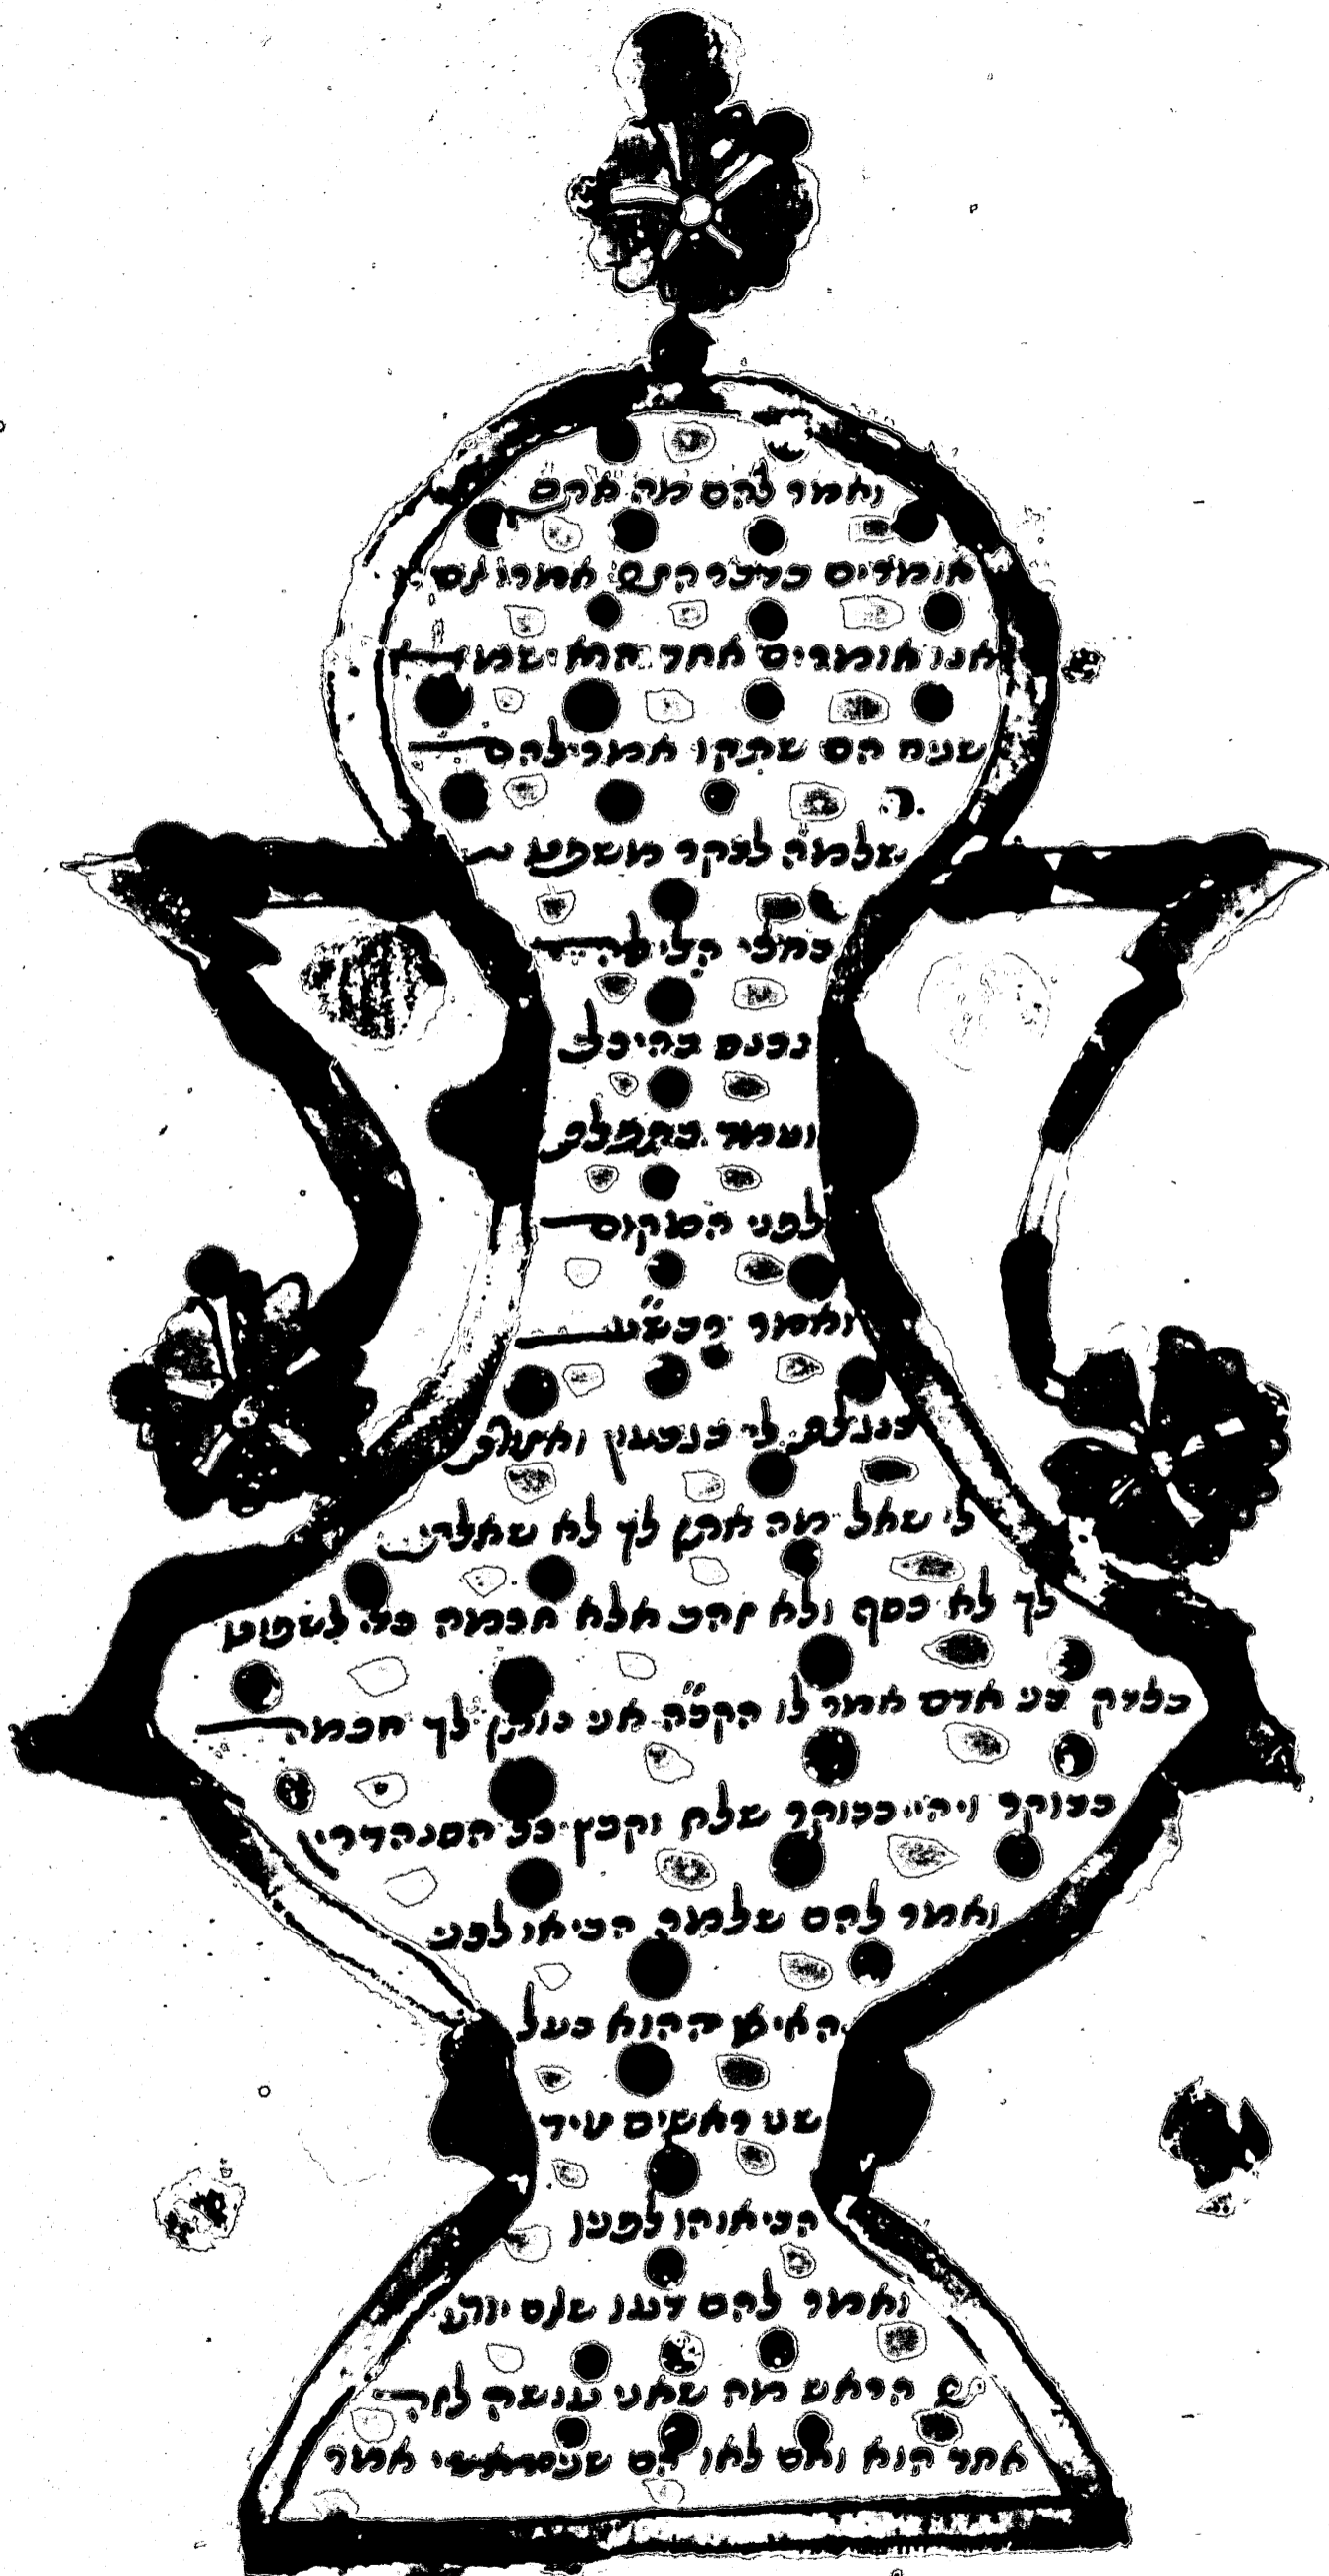 ואמר להם מה אתם
אומרים בדבר הזה אמרו לם
אנו אומרים אחד הוא ישמ
שניה הם שתקו אמר להם
שלמה לבקר משפט
בחצי הלילה
נכנס בהיכל
ועמד בתפלה
לפני המקום
ואמר רבש״ע
כנגלת לי בגבעון ואמרת
לי שאל מה אתן לך לא שאלתי
לך לא כסף ולא זהב אלא חכמה כדי לשפוט
בצדק בני אדם אמר לו הקב״ה אני נותן לך חכמה
בבוקר ויהי בבוקר שלח וקבץ כל הסנהדרין
ואמר להם שלמה הביאו לפני
האיש ההוא בעל
שני ראשים מיד
הביאוהו לפניו
ואמר להם דעו שאם יודע
הראש מה שאני עושה לזה
אחד הוא ואם לאו הם שנים אמר